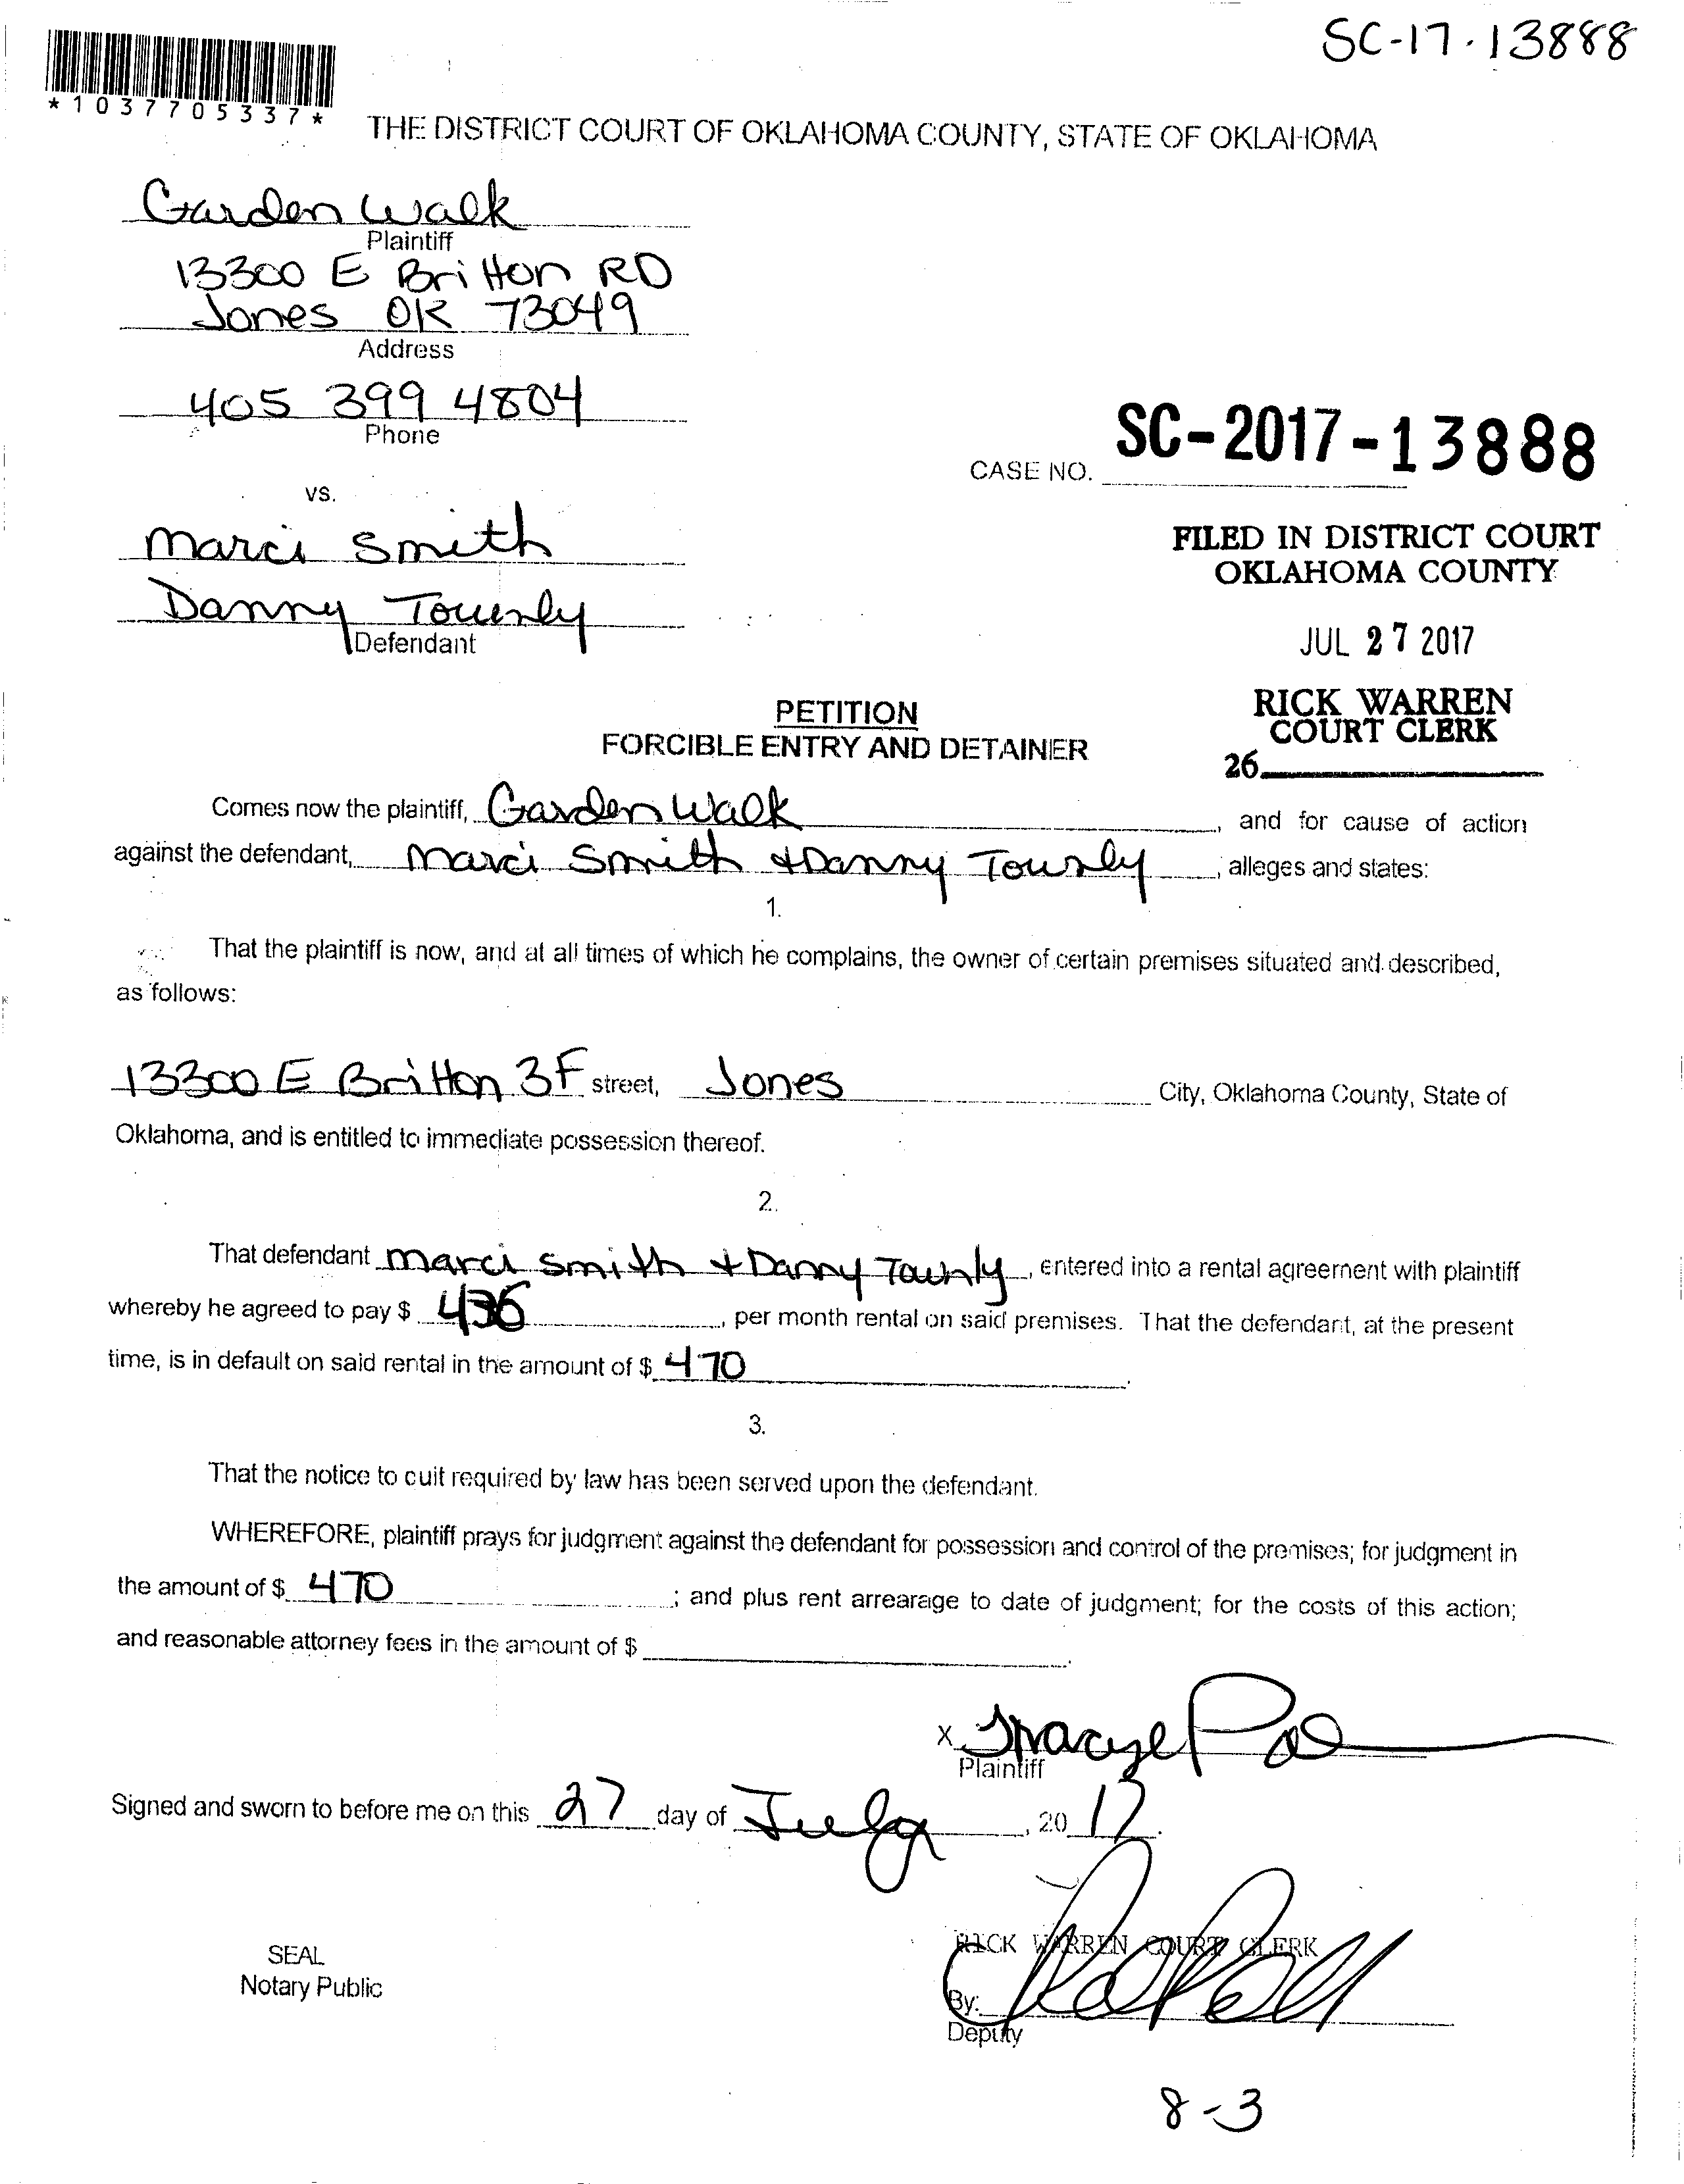 SC-17-13888
*1037705337*
THE DISTRICT COURT OF OKLAHOMA COUNTY, STATE OF OKLAHOMA
Garden Walk
Plaintiff
13300 E Britton RD
Jones OK 73049
Address
405 399 4804
Phone
CASE NO. SC-2017-13888
vs.
Marci Smith
Danny
Defendant
FILED IN DISTRICT COURT
OKLAHOMA COUNTY
JUL 27 2017
RICK WARREN
COURT CLERK
26
PETITION
FORCIBLE ENTRY AND DETAINER
Comes now the plaintiff, Garden Walk, and for cause of action
against the defendant, Marci Smith & Danny, alleges and states:
1.
That the plaintiff is now, and at all times of which he complains, the owner of certain premises situated and described,
as follows:
13300 E Britton 3F street, Jones City, Oklahoma County, State of
Oklahoma, and is entitled to immediate possession thereof.
2.
That defendant Marci Smith + Danny, entered into a rental agreement with plaintiff
whereby he agreed to pay $ 436, per month rental on said premises. That the defendant, at the present
time, is in default on said rental in the amount of $ 470.
3.
That the notice to cuit required by law has been served upon the defendant.
WHEREFORE, plaintiff prays for judgment against the defendant for possession and control of the premises; for judgment in
the amount of $ 470; and plus rent arrearage to date of judgment; for the costs of this action;
and reasonable attorney fees in the amount of $.
X
Plaintiff
Signed and sworn to before me on this 27 day of July, 2017.
RICK WARREN COURT CLERK
SEAL
Notary Public
By:
Deputy
8-3